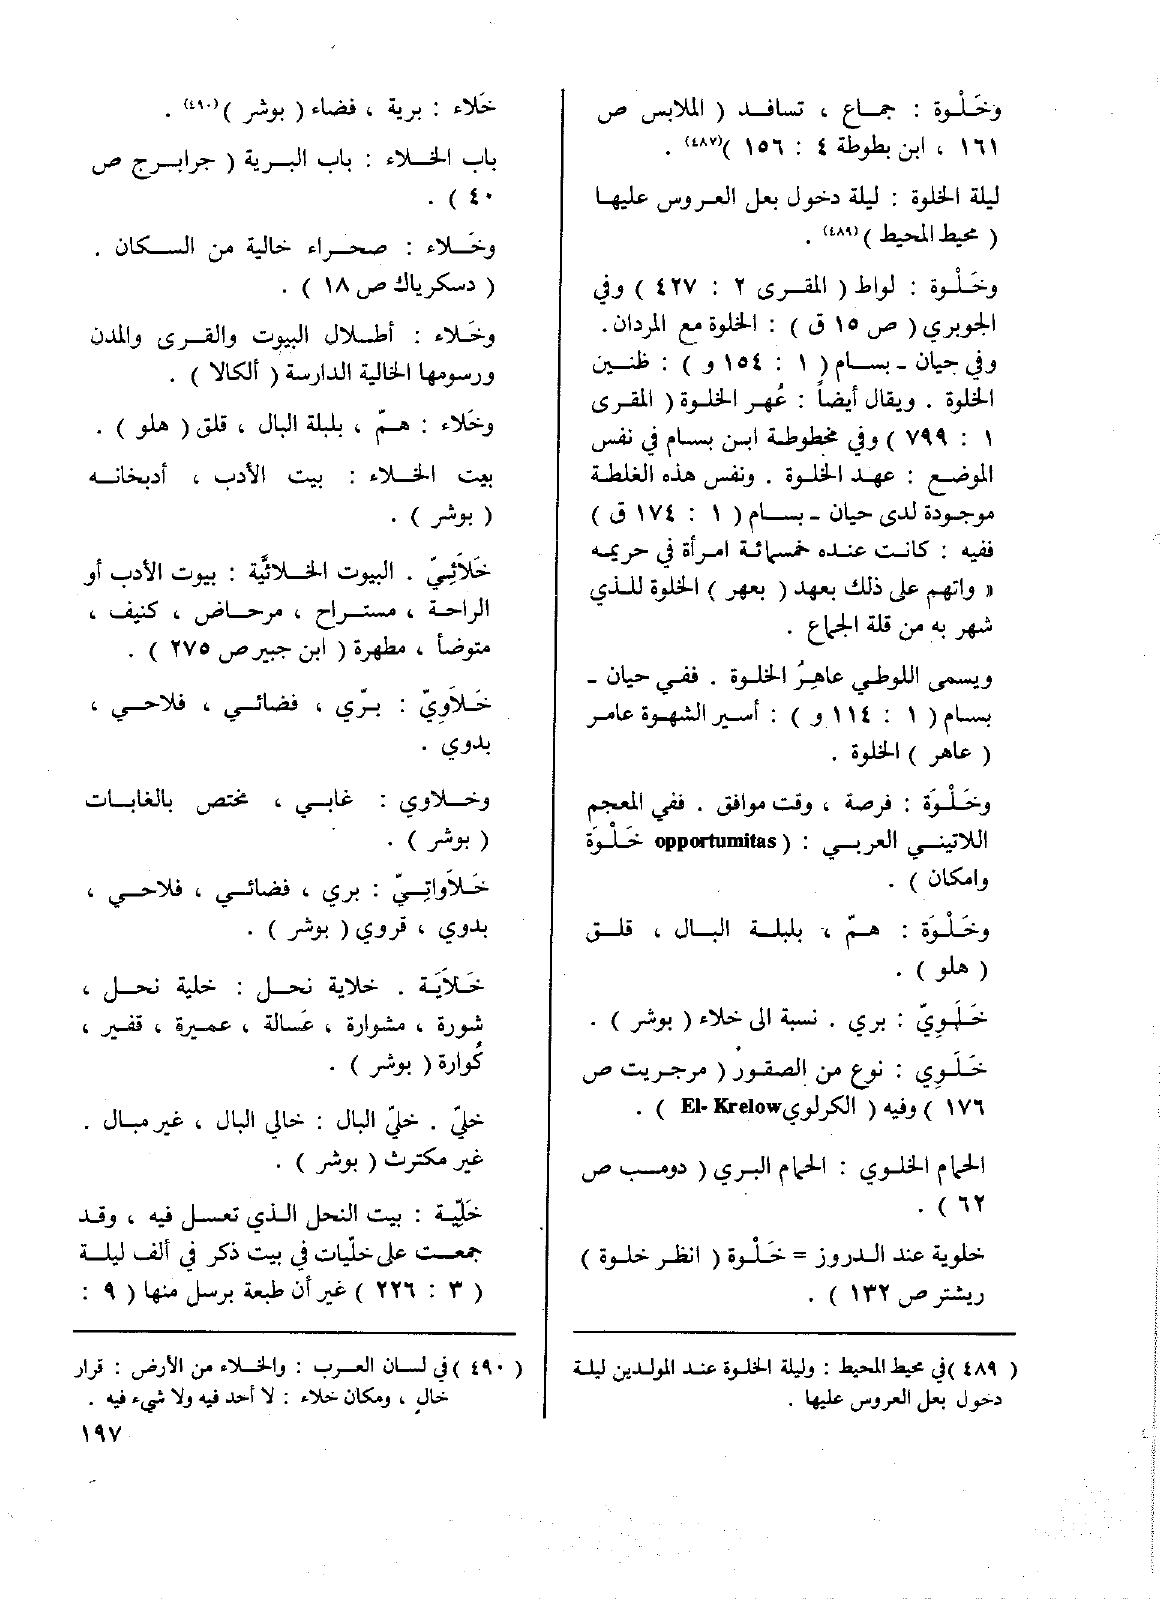 وخَلْوة : جماع ، تسافد ( الملابس ص
١٦١ ، ابن بطوطة ٤ : ١٥٦ )(٤٨٧) .
ليلة الخلوة : ليلة دخول بعل العروس عليها
( محيط المحيط )(٤٨٩) .
وخَلْوة : لواط ( المقرى ٢ : ٤٢٧ ) وفي
الجوبري ( ص ١٥ ق ) : الخلوة مع المردان.
وفي حيان ـ بسام ( ١ : ١٥٤ و ) : ظنين
الخلوة . ويقال أيضاً : عُهر الخلوة ( المقرى
١ : ٧٩٩ ) وفي مخطوطة ابن بسام في نفس
الموضع : عهد الخلوة . ونفس هذه الغلطة
موجودة لدى حيان ـ بسام ( ١ : ١٧٤ ق )
ففيه : كانت عنده خمسمائة امرأة في حريمه
« واتهم على ذلك بعهد ( بعهر ) الخلوة للذي
شهر به من قلة الجماع .
ويسمى اللوطي عاهِرُ الخلوة . ففي حيان ـ
بسام ( ١ : ١١٤ و ) : أسير الشهوة عامر
( عاهر ) الخلوة .
وخَلْوَة : فرصة ، وقت موافق . ففي المعجم
اللاتيني العربي : ( opportumitas خَلْوَة
وامكان ) .
وخَلْوَة : همّ ، بلبلة البال ، قلق
( هلو ) .
خَلَوِيّ : بري . نسبة الى خلاء ( بوشر ) .
خَلَوِي : نوع من الصقور ( مرجريت ص
١٧٦ ) وفيه ( الكرلوي El- Krelow ) .
الحمام الخلوي : الحمام البري ( دومب ص
٦٢ ) .
خلوية عند الدروز = خَلْوة ( انظر خلوة )
ريشتر ص ١٣٢ ) .
( ٤٨٩ ) في محيط المحيط : وليلة الخلوة عند المولدين ليلة
دخول بعل العروس عليها .
خَلاء : برية ، فضاء ( بوشر )(٤٩٠) .
باب الخلاء : باب البرية ( جرابرج ص
٤٠ ) .
وخَلاء : صحراء خالية من السكان .
( دسكرياك ص ١٨ ) .
وخَلاء : أطلال البيوت والقرى والمدن
ورسومها الخالية الدارسة ( ألكالا ) .
وخَلاء : همّ ، بلبلة البال ، قلق ( هلو ) .
بيت الخلاء : بيت الأدب ، أدبخانه
( بوشر ) .
خَلَائِيّ . البيوت الخلائيَّة : بيوت الأدب أو
الراحة ، مستراح ، مرحاض ، كنيف ،
متوضأ ، مطهرة ( ابن جبير ص ٢٧٥ ) .
خَلاَوِيّ : برّي ، فضائي ، فلاحي ،
بدوي .
وخلاوي : غابي ، مختص بالغابات
( بوشر ) .
خَلاَواتِيّ : بري ، فضائي ، فلاحي ،
بدوي ، قروي ( بوشر ) .
خَلاَيَة . خلاية نحل : خلية نحل ،
شورة ، مشوارة ، عَسالة ، عميرة ، قفير ،
كُوارة ( بوشر ) .
خليّ . خليّ البال : خالي البال ، غير مبال .
غير مكترث ( بوشر ) .
خَلِيّة : بيت النحل الذي تعسل فيه ، وقد
جمعت على خليّات في بيت ذكر في ألف ليلة
( ٣ : ٢٢٦ ) غير أن طبعة برسل منها ( ٩ :
( ٤٩٠ ) في لسان العرب : والخلاء من الأرض : قرار
خالٍ ، ومكان خلاء : لا أحد فيه ولا شيء فيه .
١٩٧